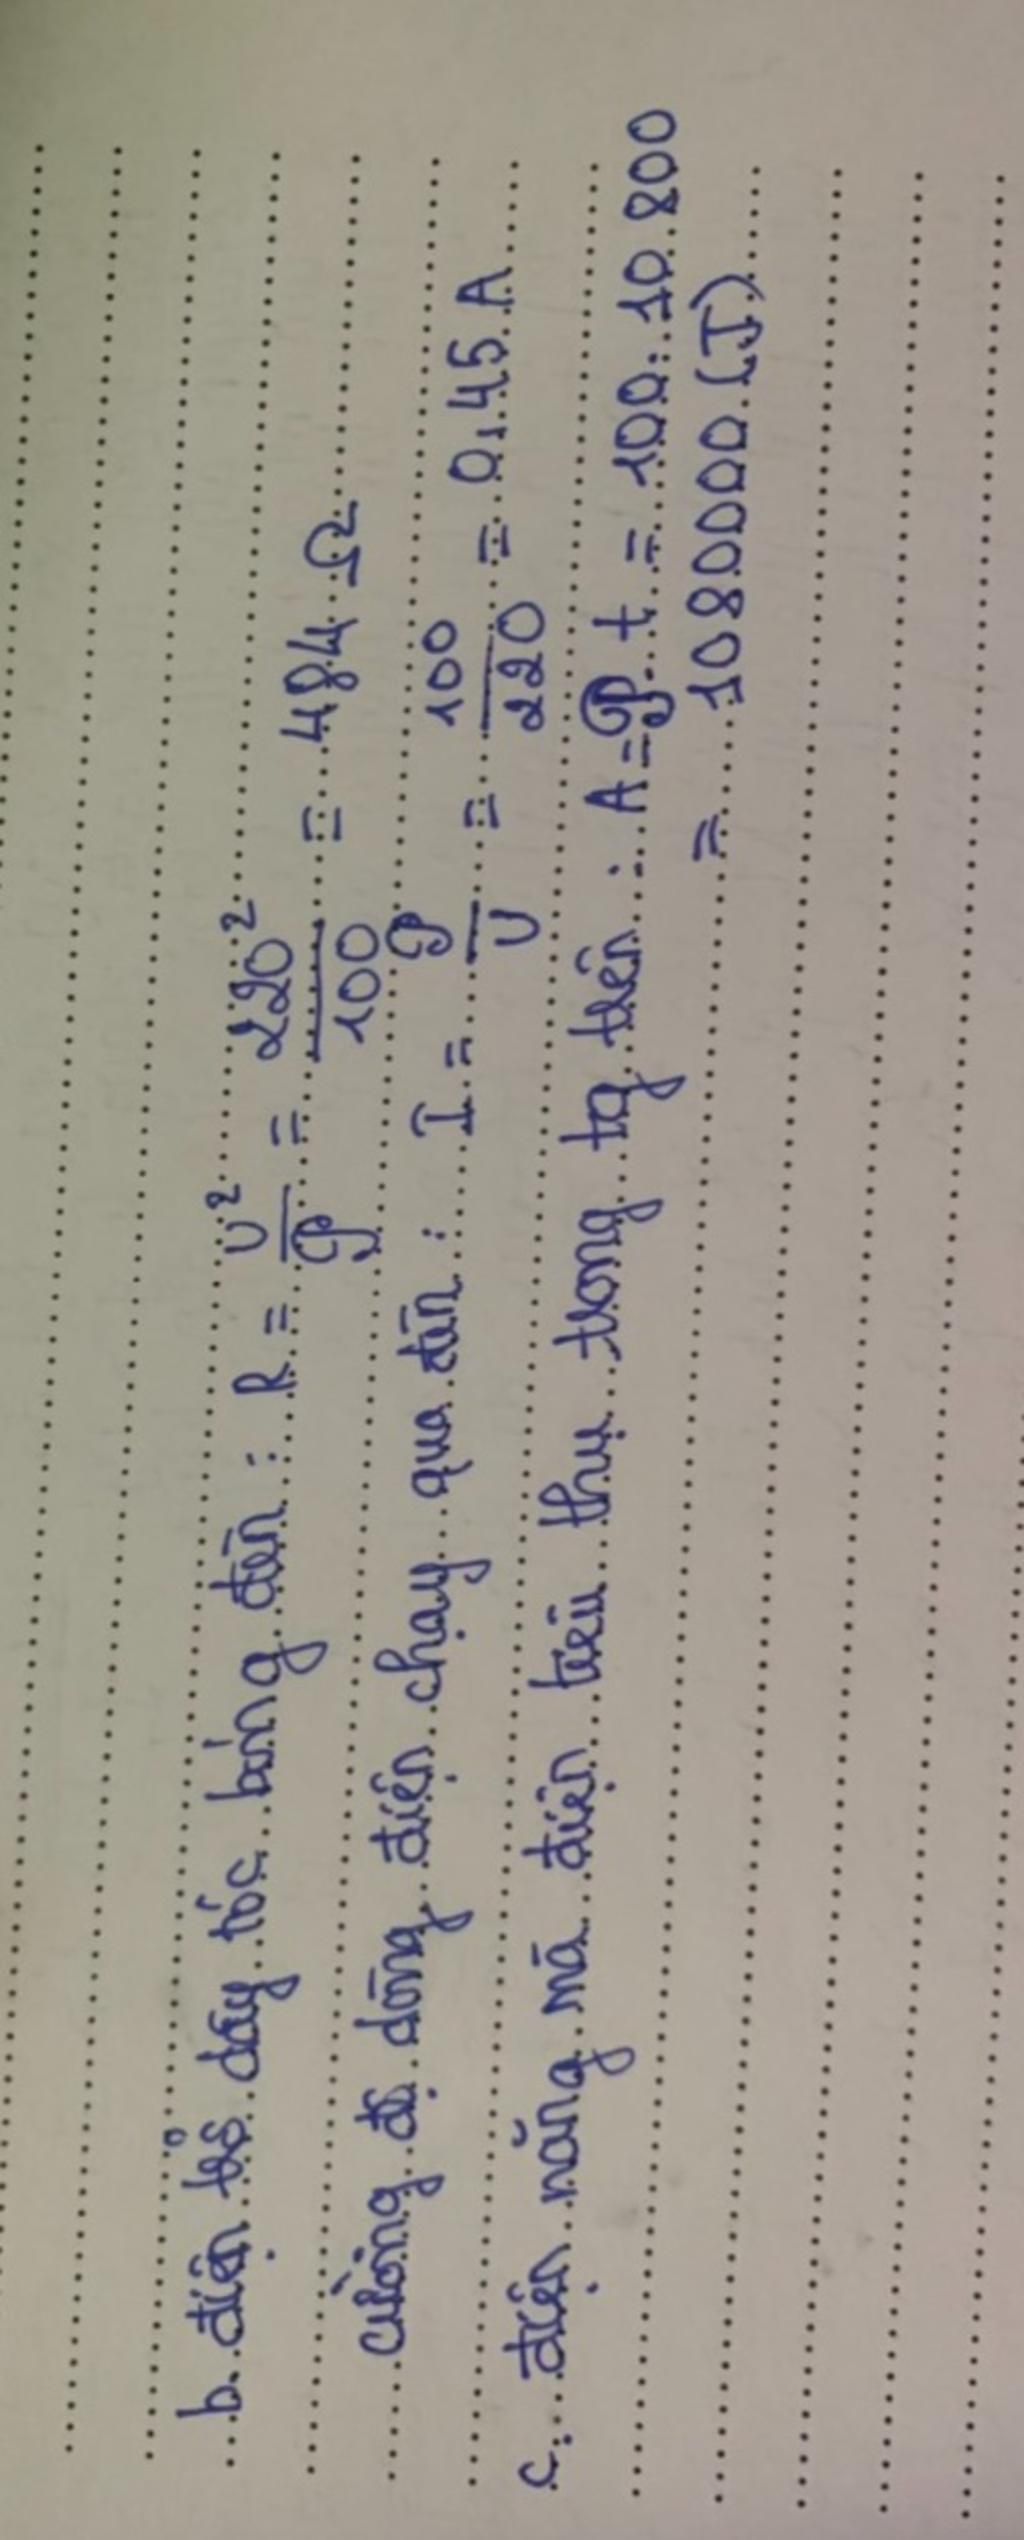 b. điện trở dây tóc bóng đèn : R = U²/℘ = 220²/100 = 484 Ω
cường độ dòng điện chạy qua đèn : I = ℘/U = 100/220 = 0,45 A
c. điện năng mà điện tiêu thụ trong tg trên : A = ℘.t = 100.10 800
= 1080000 (J)